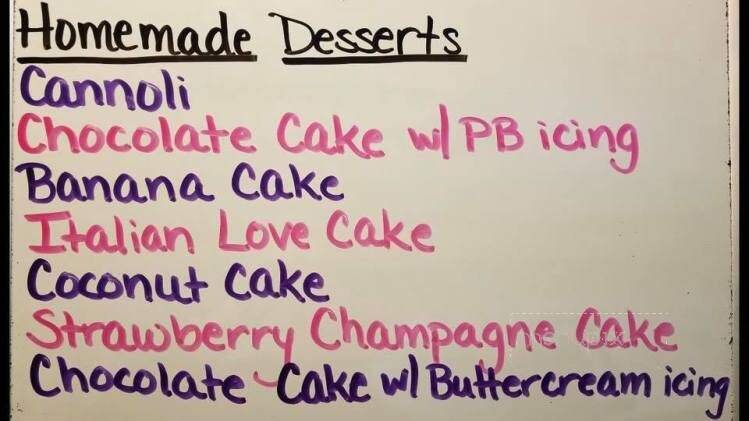 Homemade Desserts
Cannoli
Chocolate Cake w/ PB icing
Banana Cake
Italian Love Cake
Coconut Cake
Strawberry Champagne Cake
Chocolate Cake w/ Buttercream icing